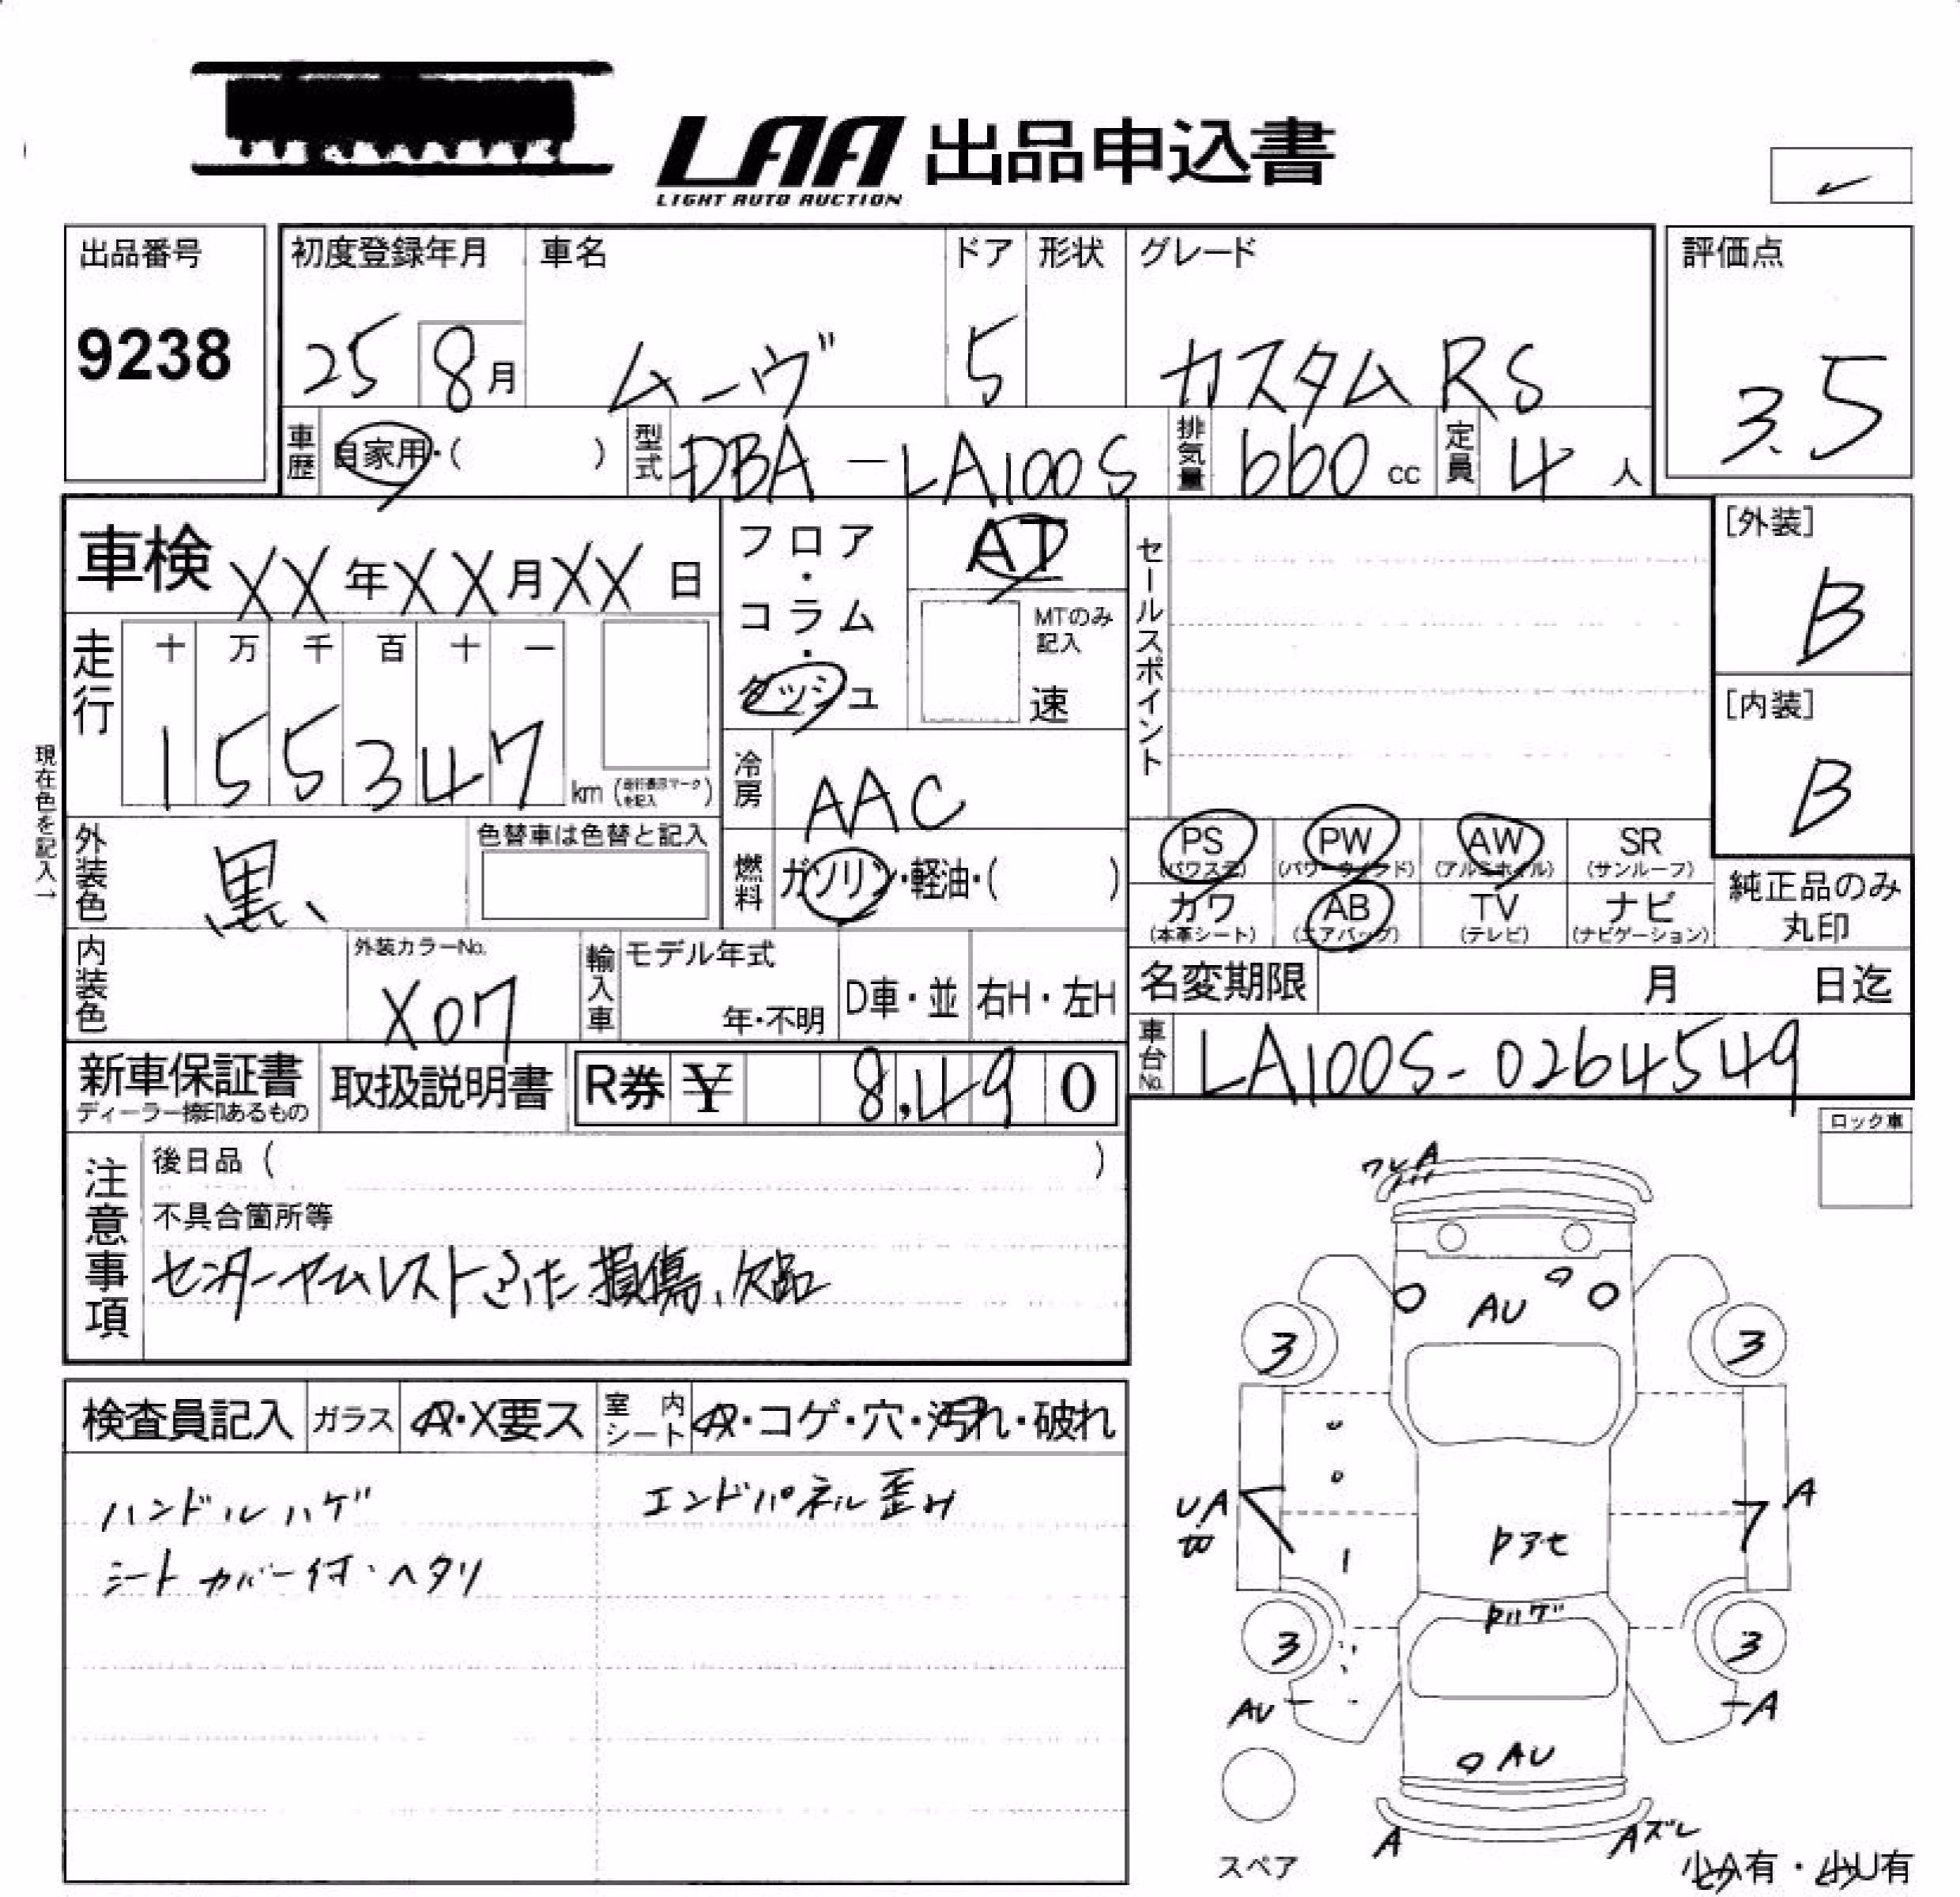 LAA 出品申込書
LIGHT AUTO AUCTION
出品番号
9238
初度登録年月
25 8月
車名
ムーヴ
ドア
5
形状
グレード
カスタム RS
評価点
3.5
車歴
自家用・( )
型式
DBA-LA100S
排気量
660 cc
定員
4 人
車検 XX年XX月XX日
フロア・コラム・ダッシュ
AT
MTのみ記入
速
セールスポイント
[外装]
B
[内装]
B
走行
十 万 千 百 十 一
1 5 5 3 4 7 km (走行表示マークを記入)
冷房
AAC
現在色を記入→
外装色
黒
色替車は色替と記入
燃料
ガソリン・軽油・( )
PS (パワステ)
PW (パワーウインドウ)
AW (アルミホイル)
SR (サンルーフ)
カワ (本革シート)
AB (エアバッグ)
TV (テレビ)
ナビ (ナビゲーション)
純正品のみ丸印
内装色
外装カラーNo.
X07
輸入車
モデル年式
年・不明
D車・並
右H・左H
名変期限 月 日迄
車台No.
LA100S-0264549
新車保証書
ディーラー捺印あるもの
取扱説明書
R券 ¥ 8,490
ロック車
注意事項
後日品 ( )
不具合箇所等
センターアームレストふた損傷、欠品
検査員記入
ガラス
A・X要ス
室内シート
A・コゲ・穴・汚れ・破れ
ハンドルハゲ
シートカバー付・ヘタリ
エンドパネル歪み
ワレA
AU
3
3
UA
A
トアセ
トハゲ
3
3
AU
A
AU
A
Aズレ
スペア
少A有・少U有